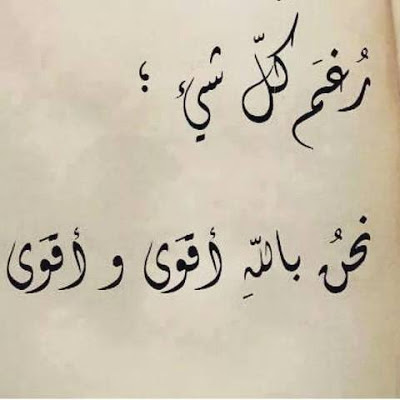 رُغَم كلّ شئٍ ؛
نحنُ باللّهِ أقوَى و أقوَى